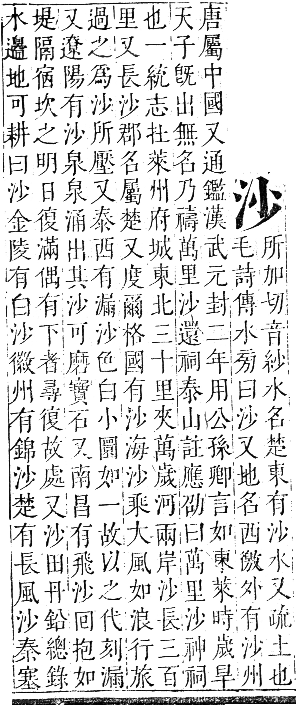 沙
所加切音紗水名楚東有沙水又疏土也
毛詩傳水旁曰沙又地名西徼外有沙州
唐屬中國又通鑑漢武元封二年用公孫卿言如東萊時歲旱
天子旣出無名乃禱萬里沙還祠泰山註應劭曰萬里沙神祠
也一統志在萊州府城東北三十里夾萬歲河兩岸沙長三百
里又長沙郡名屬楚又度爾格國有沙海沙乘大風如浪行旅
過之爲沙所壓又泰西有漏沙色白小圜如一故以之代刻漏
又遼陽有沙泉泉涌出其沙可磨寶石又南昌有飛沙回抱如
堤隔宿坎之明日復滿偶有下者尋復故處又沙田丹鉛總錄
水邊地可耕曰沙金陵有白沙徽州有錦沙楚有長風沙秦塞